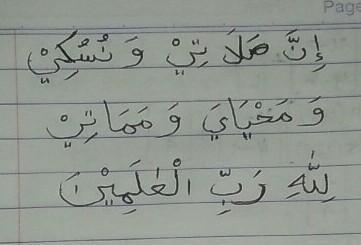 Page
إِنَّ صَلَاتِيْ وَنُسُكِيْ
وَمَحْيَايَ وَمَمَاتِيْ
لِلّٰهِ رَبِّ الْعٰلَمِيْنَ